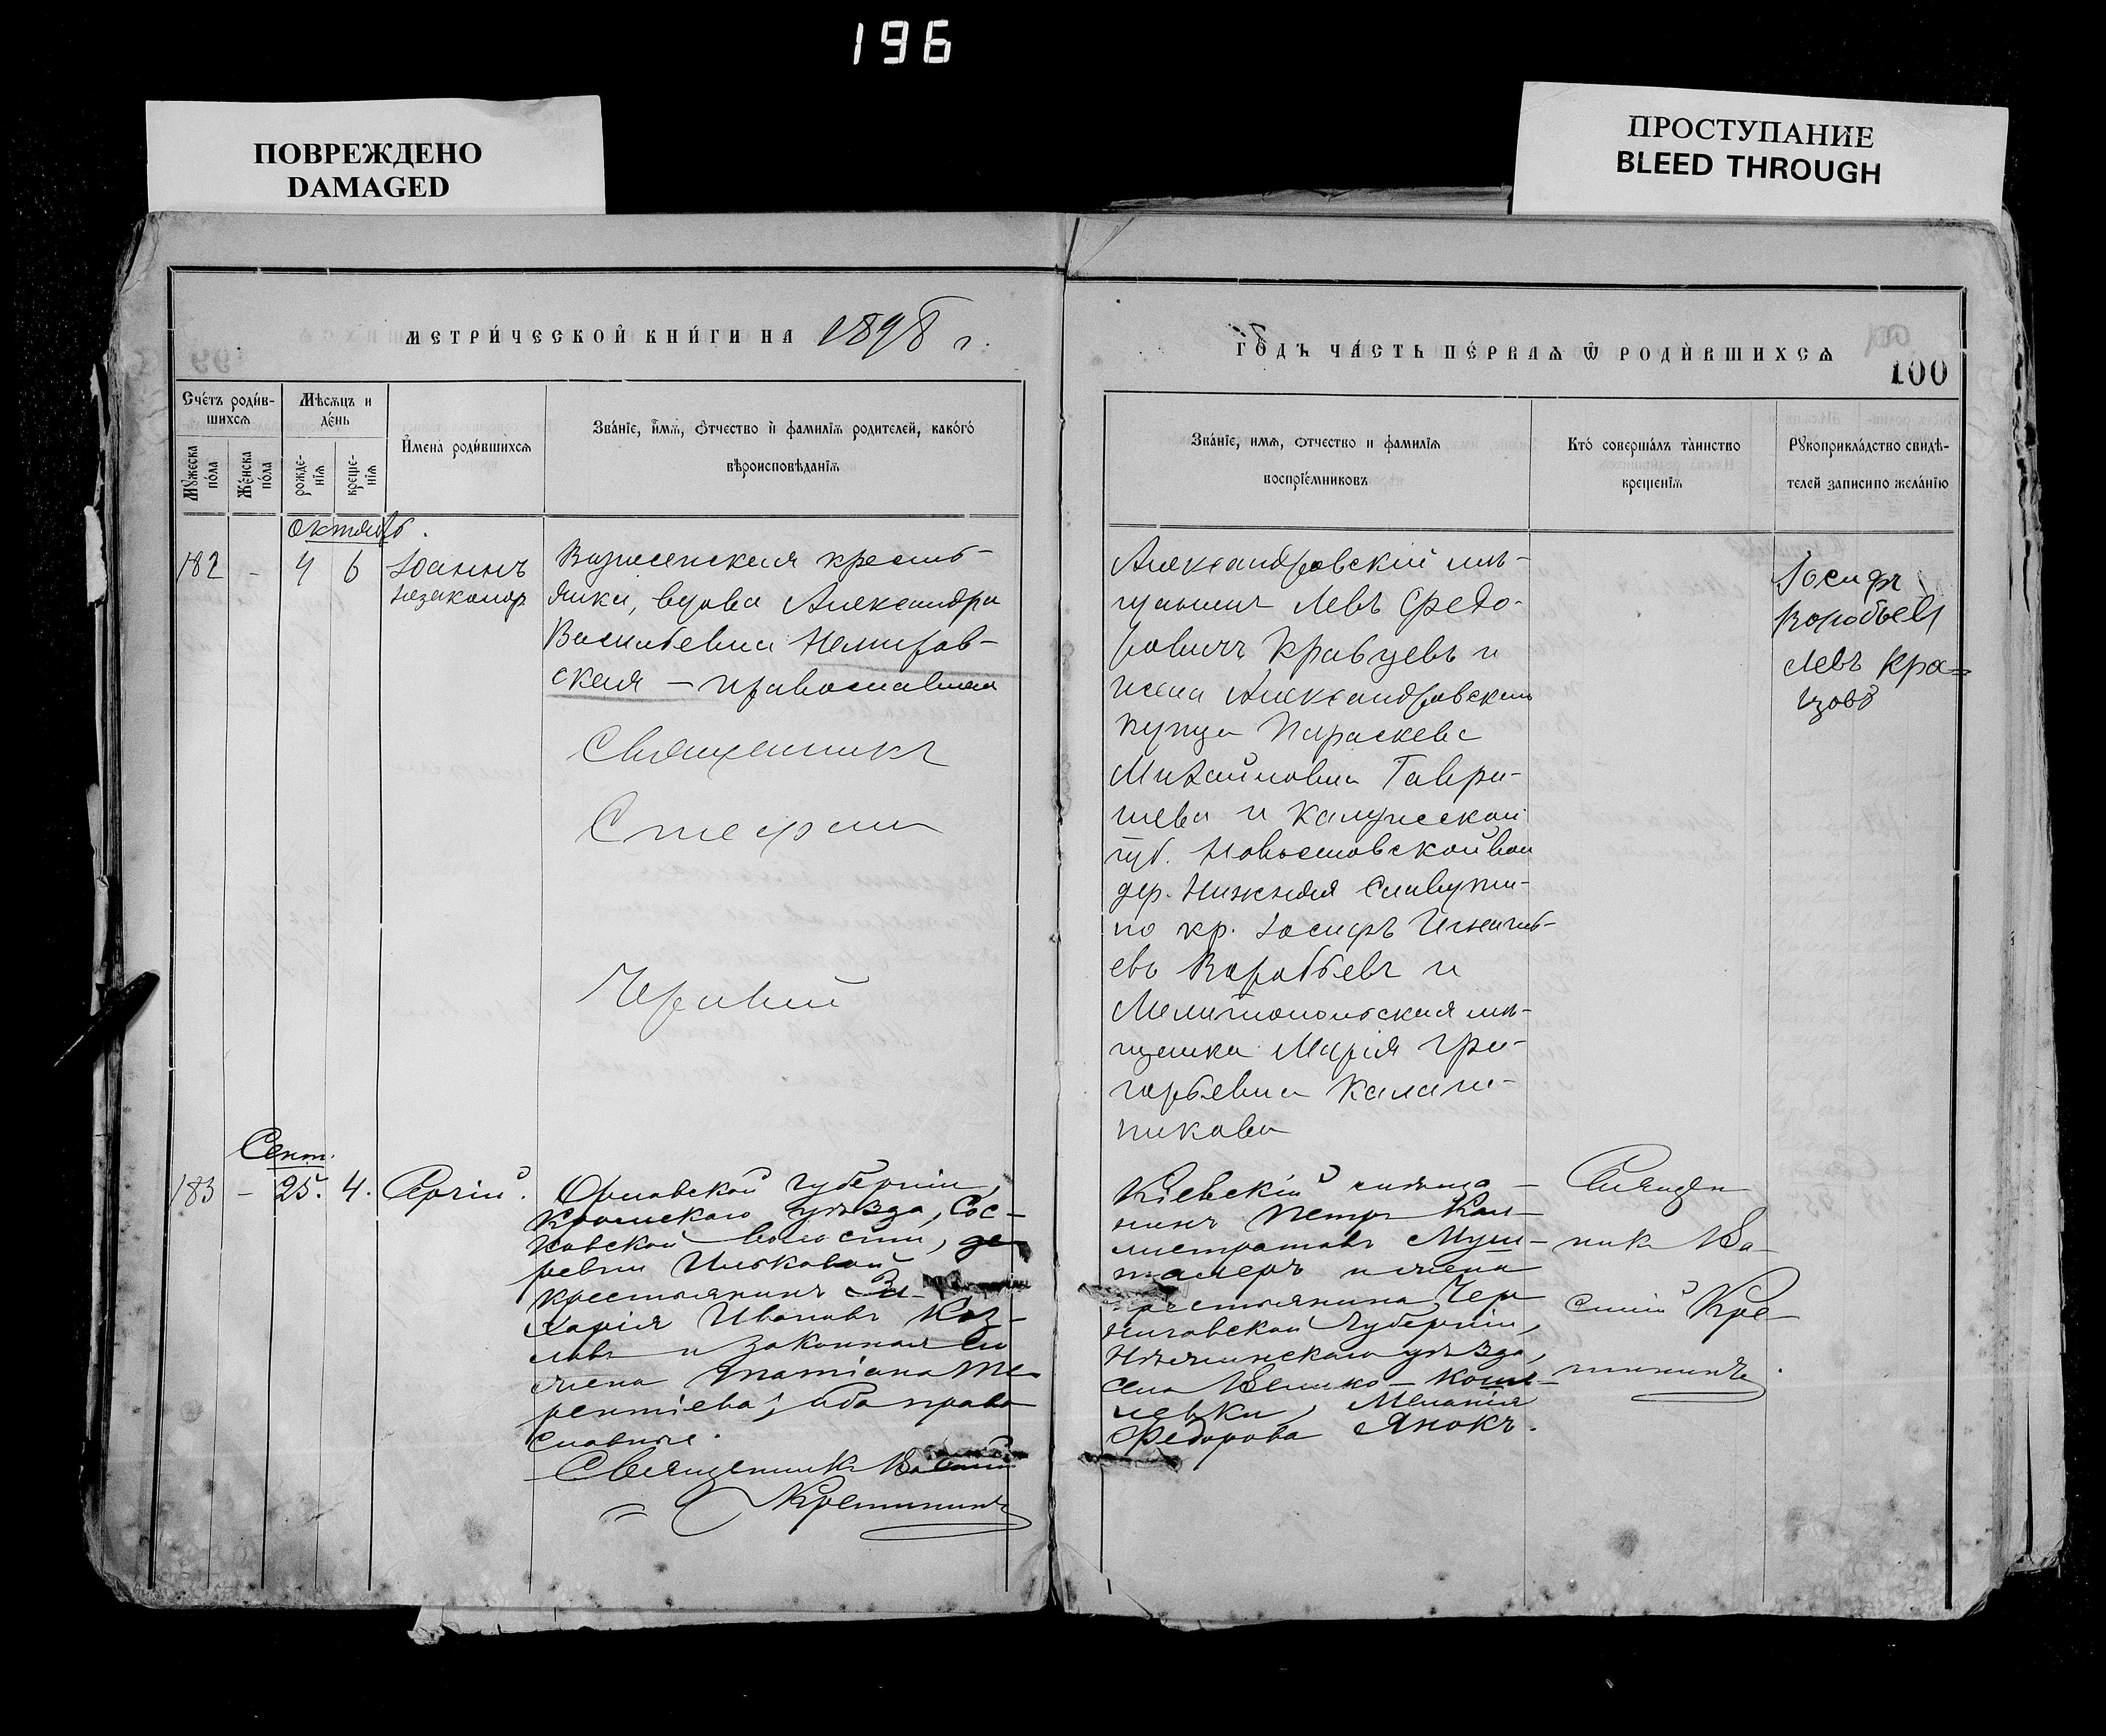 196
ПОВРЕЖДЕНО
DAMAGED
ПРОСТУПАНИЕ
BLEED THROUGH
МЕТРИ́ЧЕСКОЙ КНИ́ГИ НА 1898 г.
Сче́тъ роди́в-
шихсѧ
Мѣсѧцъ и
де́нь
Мꙋжеска
по́ла
Же́нска
по́ла
рожде-
нїѧ
креще-
нїѧ
И҆мена̀ роди́вшихсѧ
Зва́нїе, и҆́мѧ, ѻ҆́тчество и҆ фамилїѧ родителей, како́гѡ
вѣроисповѣданїѧ
Октябь.
182 - 4 6
Іоаннъ
незаконор.
Вознесенская кресть-
янка, вдова Александра
Васильевна Немиров-
ская – православная
Священникъ
Стефан
Сент.
183 - 25. 4. Сергій.
Орловской губерніи,
Кромскаго уѣзда, Сос-
ковской волости, де
ревни
крестьянинъ За-
харія Ивановъ Коз-
ловъ и законная его
жена Татіана Те-
рентіева; оба право
славные.
Священникъ Василій
Кремининъ
ГО́ДЪ ЧА́СТЬ ПЕ́РВАѦ Ѽ РОДИ́ВШИХСѦ
100
Зва́нїе, имѧ, ѻтчество и фамилїѧ
воспрїе́мниковъ
Кто̀ соверша́лъ та́инство
крещенїѧ
Рꙋкоприкла́дство свидѣ-
телей записи по жела́нїю
Александровскій мѣ-
щанинъ Левъ Ѳедо-
ровичъ Кравцевъ и
жена Александровскаго
купца Параскева
Михайловна Гаври-
шева и Калужской
губ. вол
дер. Нижняя
но кр. Іосифъ Игнать-
евъ Воробьевъ и
Мелитопольская мѣ-
щанка Марія Гри-
горьевна Калаш-
никова
Іосифъ
Воробьевъ
Левъ Кра=
цовъ
Кіевскій
нинъ Петръ Кал-
листратовъ
и жена
крестьянина Чер
ниговской губерніи,
Нѣжинскаго уѣзда,
села Велико – Коше-
левки, Меланія
Федорова Янокъ.
Священ
никъ Ва-
силій Кре-
мининъ.